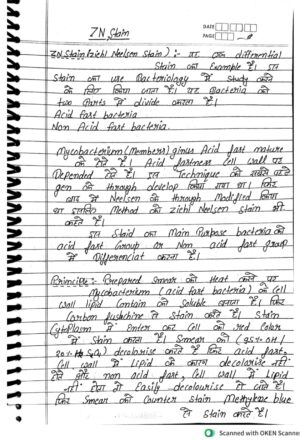 ZN Stain
DATE
PAGE
ZN Stain (Ziehl Neelsen Stain) :- यह एक differential
Stain का Example है। इस
Stain का use Bacteriology में Study करने
के लिए किया जाता है। यह Bacteria को
two Parts में divide करता है।
Acid fast bacteria
Non Acid fast bacteria.
Mycobacterium (Members) ginus Acid fast nature
के होते है। Acid fastness Cell wall पर
Depended होते है। इस Technique को सबसे पहले
gen के through develop किया गया था। फिर
बाद में Neelsen के through Modified किया
था इसलिए Method को Ziehl Neelsen Stain भी
कहते है।
इस Staid का Main Purpose bacteria को
acid fast Group or Non acid fast group
में Differenciat करना है।
Principle:- Prepared Smear को Heat करने पर
Mycobacterium (acid fast bacteria) के Cell
wall lipid Contain को Soluble बनाता है। फिर
Carbon fushchine से Stain करते है। Stain
CytoPlasm में Enter कर Cell को red Color
में Stain करता है। Smear को (95% OH /
20% H₂SO₄) decolorise करते है फिर acid fast
Cell wall में Lipid के कारण decolorise नहीं
होते और non acid fast, Cell wall में Lipid
नहीं होता में Easily decolourise हो जाते है।
फिर Smear को Counter Stain Methylene blue
से Stain करते है।
Scanned with OKEN Scanner